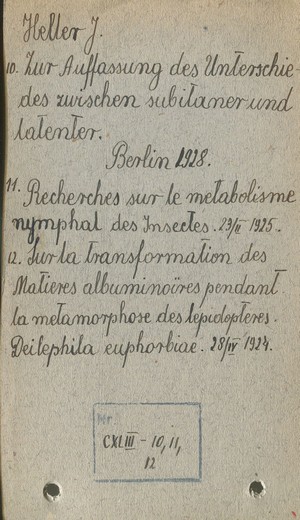 Heller J.
10. Zur Auffassung des Unterschie-
des zwischen subitaner und
latenter.
Berlin 1928.
11. Recherches sur le metabolisme
nymphal des Insectes. 23/II 1925.
12. Sur la transformation des
Matières albuminoïres pendant
la metamorphose des lepidopteres.
Deilephila euphorbiae. 28/IV 1924.
Nr.
CXLIII - 10, 11,
12